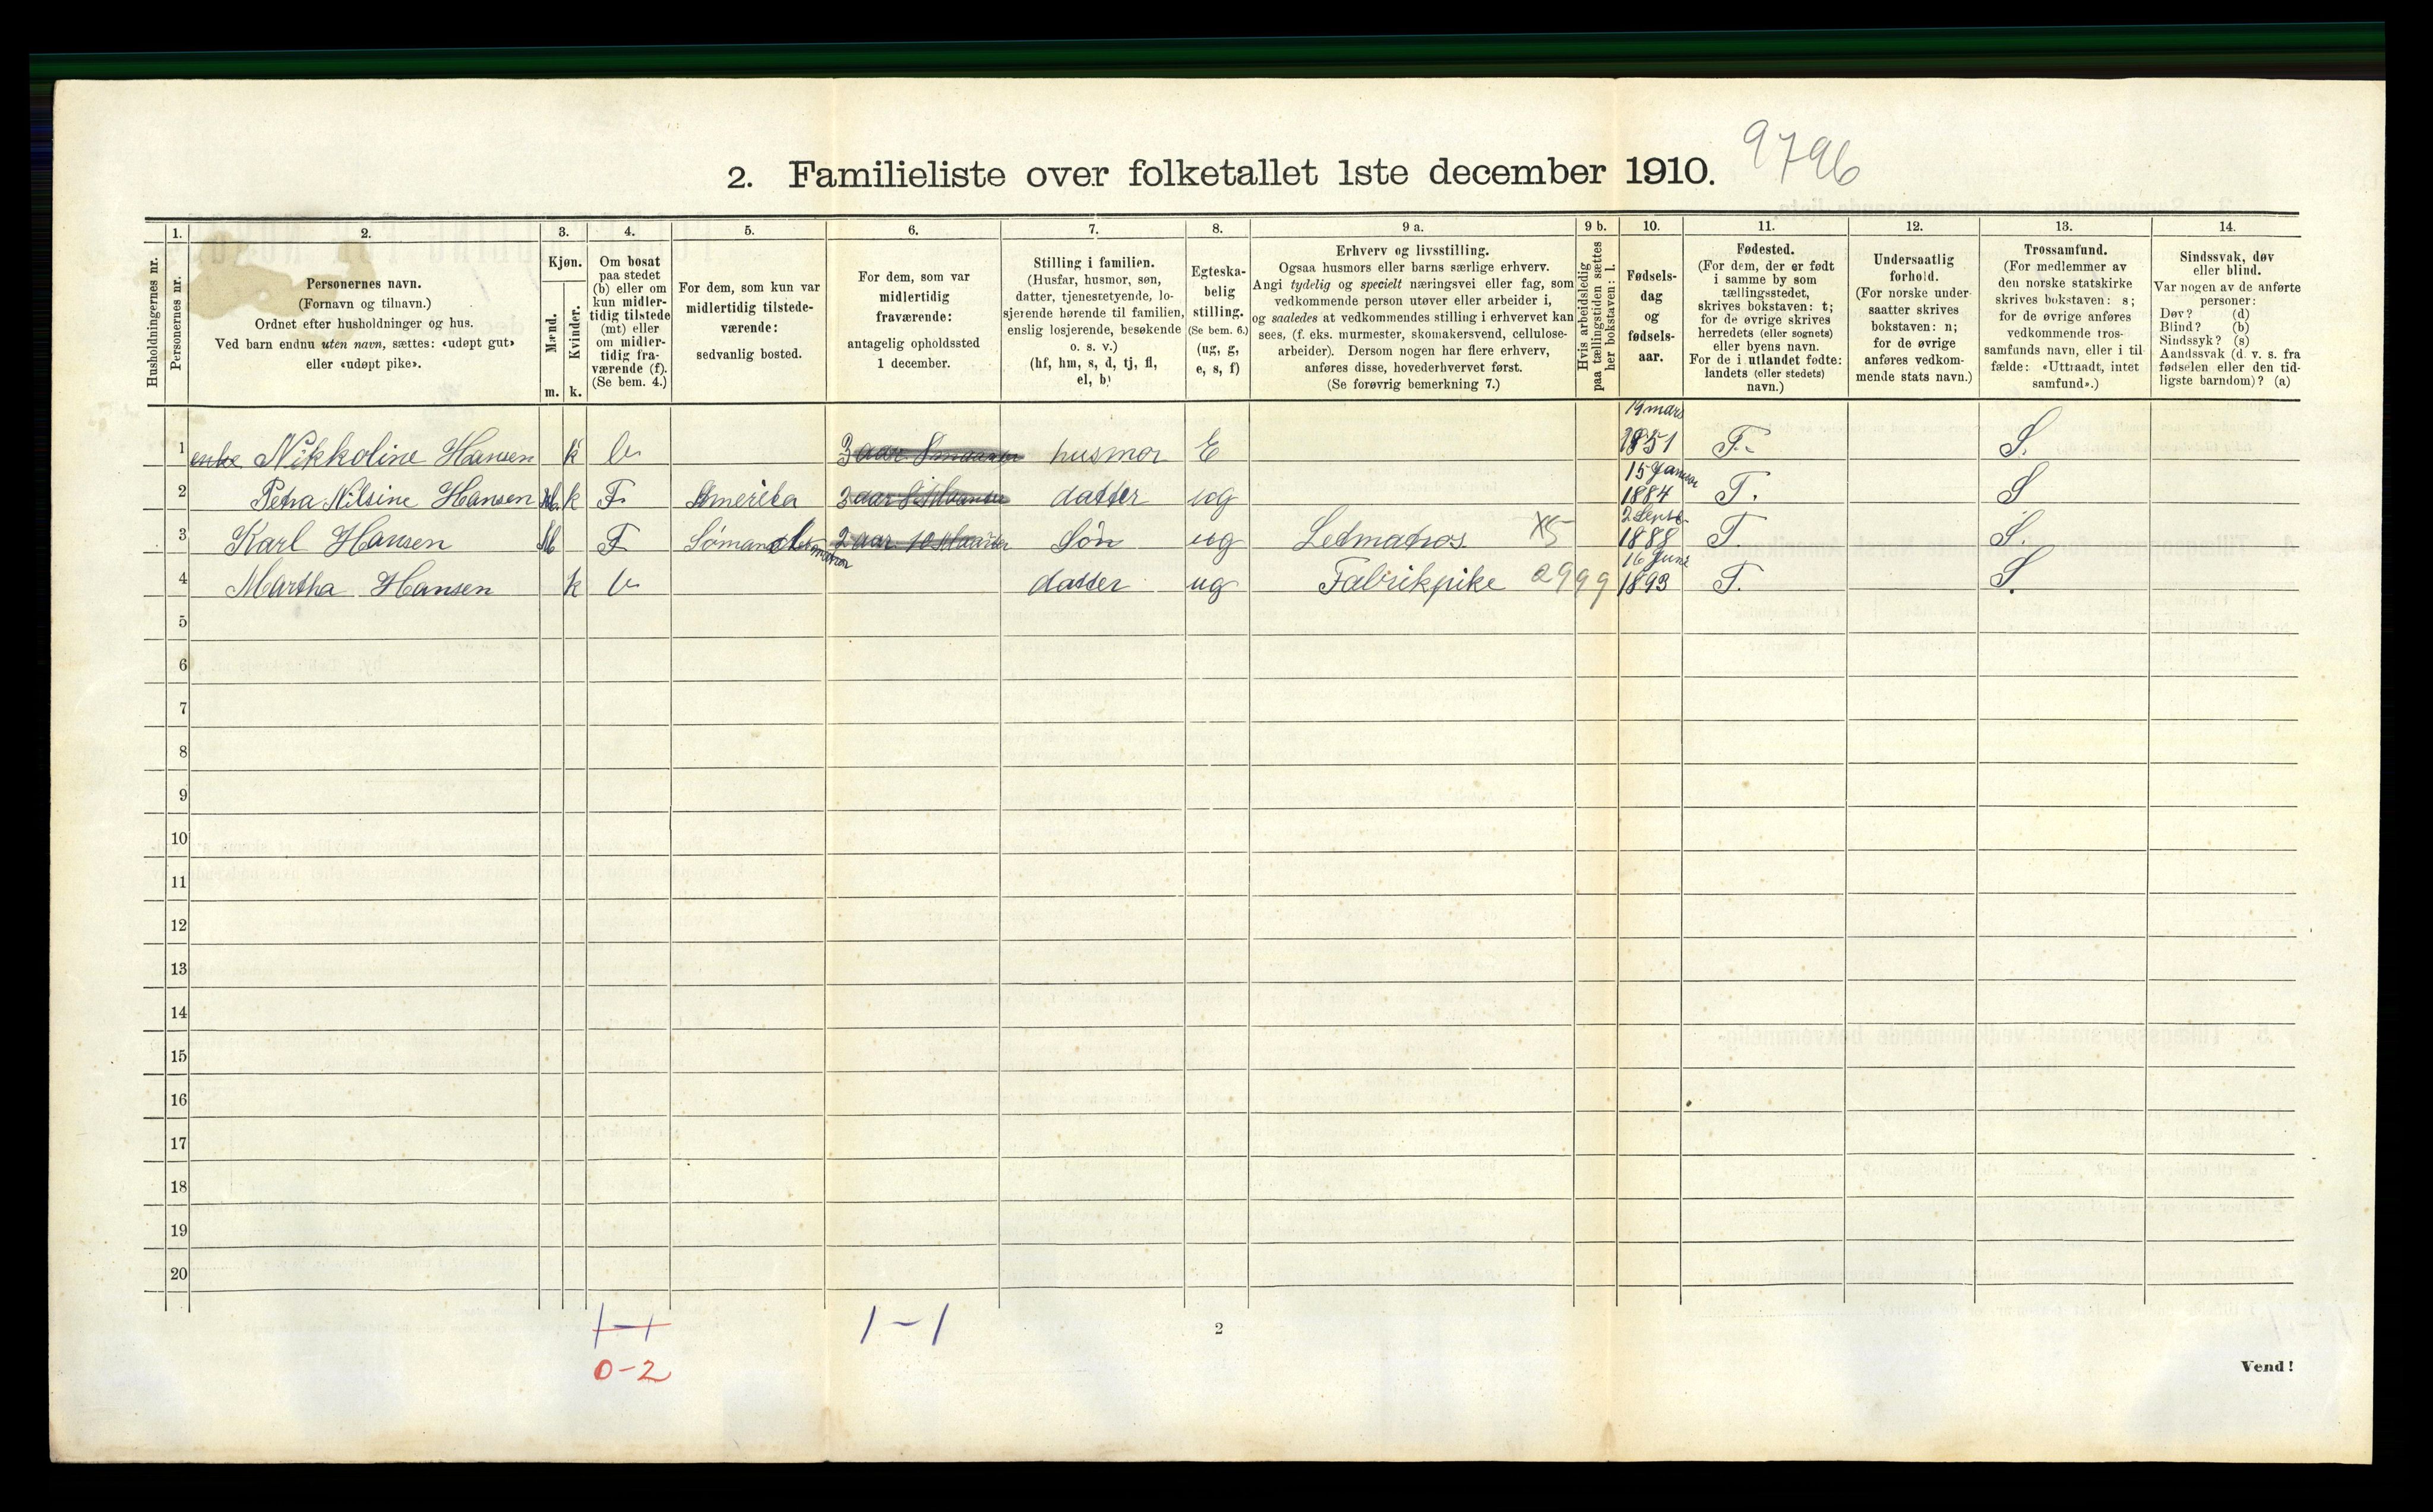 9796
2. Familieliste over folketallet 1ste december 1910.
Husholdningernes nr.
1.
Personernes nr.
2.
Personernes navn.
(Fornavn og tilnavn.)
Ordnet efter husholdninger og hus.
Ved barn endnu uten navn, sættes: «udøpt gut»
eller «udøpt pike».
3.
Kjøn.
Mænd.
Kvinder.
m. k.
4.
Om bosat
paa stedet
(b) eller om
kun midler-
tidig tilstede
(mt) eller
om midler-
tidig fra-
værende (f).
(Se bem. 4.)
5.
For dem, som kun var
midlertidig tilstede-
værende:
sedvanlig bosted.
6.
For dem, som var
midlertidig
fraværende:
antagelig opholdssted
1 december.
7.
Stilling i familien.
(Husfar, husmor, søn,
datter, tjenestetyende, lo-
sjerende hørende til familien,
enslig losjerende, besøkende
o. s. v.)
(hf, hm, s, d, tj, fl,
el, b)
8.
Egteska-
belig
stilling.
(Se bem. 6.)
(ug, g,
e, s, f)
9 a.
Erhverv og livsstilling.
Ogsaa husmors eller barns særlige erhverv.
Angi tydelig og specielt næringsvei eller fag, som
vedkommende person utøver eller arbeider i,
og saaledes at vedkommendes stilling i erhvervet kan
sees, (f. eks. murmester, skomakersvend, cellulose-
arbeider). Dersom nogen har flere erhverv,
anføres disse, hovederhvervet først.
(Se forøvrig bemerkning 7.)
9 b.
Hvis arbeidsledig
paa tællingstiden sættes
her bokstaven: l.
10.
Fødsels-
dag
og
fødsels-
aar.
11.
Fødested.
(For dem, der er født
i samme by som
tællingsstedet,
skrives bokstaven: t;
for de øvrige skrives
herredets (eller sognets)
eller byens navn.
For de i utlandet fødte:
landets (eller stedets)
navn.)
12.
Undersaatlig
forhold.
(For norske under-
saatter skrives
bokstaven: n;
for de øvrige
anføres vedkom-
mende stats navn.)
13.
Trossamfund.
(For medlemmer av
den norske statskirke
skrives bokstaven: s;
for de øvrige anføres
vedkommende tros-
samfunds navn, eller i til-
fælde: «Uttraadt, intet
samfund».)
14.
Sindssvak, døv
eller blind.
Var nogen av de anførte
personer:
Døv? (d)
Blind? (b)
Sindssyk? (s)
Aandssvak (d. v. s. fra
fødselen eller den tid-
ligste barndom)? (a)
1 enke Nikkoline Hansen k b 3 aar husmor E 19 mars 1851 T. S.
2 Petra Nilsine Hansen k F Amerika 2 aar datter ug 15 Januar 1884 T. S
3 Karl Hansen M F Sømand 2 aar 10 Maaneder Søn ug Letmatros X5 2 Septb. 1888 T. S.
4 Martha Hansen k b datter ug Fabrikpike 2999 16 Juni 1893 T. S.
5
6
7
8
9
10
11
12
13
14
15
16
17
18
19
20
1-1 1-1 2
0-2
Vend!